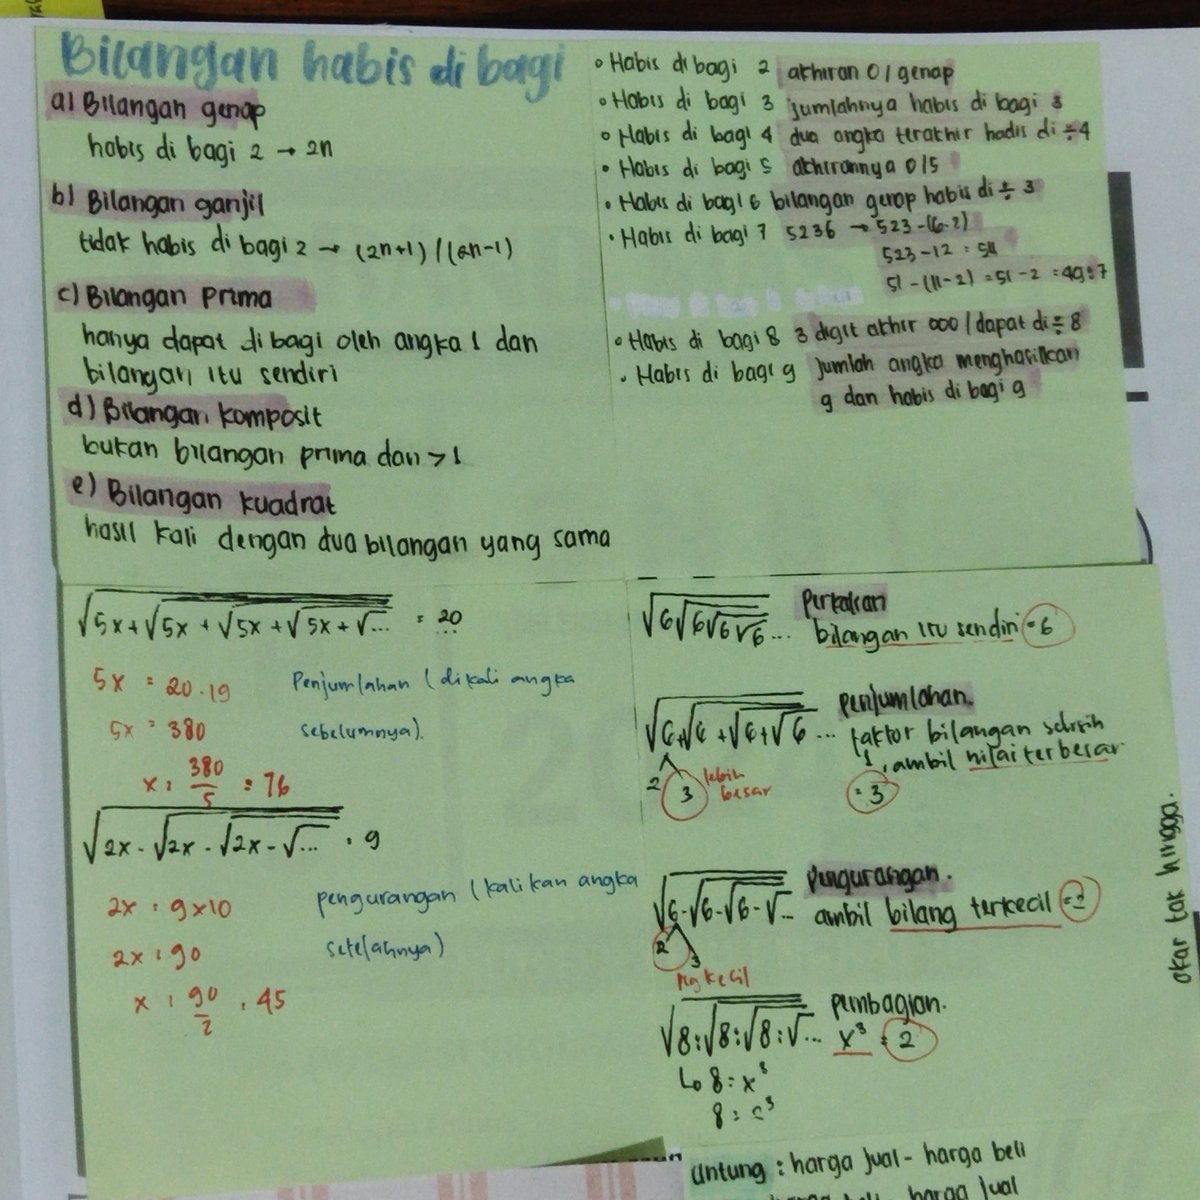 Bilangan habis di bagi
a) Bilangan genap
habis di bagi 2 → 2n
b) Bilangan ganjil
tidak habis di bagi 2 → (2n+1) / (2n-1)
c) Bilangan Prima
hanya dapat di bagi oleh angka 1 dan
bilangan itu sendiri
d) Bilangan komposit
bukan bilangan prima dan > 1
e) Bilangan kuadrat
hasil kali dengan dua bilangan yang sama
• Habis di bagi 2 akhiran 0 / genap
• Habis di bagi 3 jumlahnya habis di bagi 3
• Habis di bagi 4 dua angka terakhir habis di ÷ 4
• Habis di bagi 5 akhirannya 0/5
• Habis di bagi 6 bilangan genap habis di ÷ 3
• Habis di bagi 7 5236 → 523 - (6·2)
523 - 12 = 511
51 - (1·2) = 51 - 2 = 49 ÷ 7
• Habis di bagi 8 3 digit akhir 000 / dapat di ÷ 8
• Habis di bagi 9 jumlah angka menghasilkan
9 dan habis di bagi 9
√5x + √5x + √5x + √5x + √... = 20
5x = 20 . 19 Penjumlahan (dikali angka
5x = 380 sebelumnya).
x = 380/5 = 76
√2x - √2x - √2x - √... = 9
2x = 9 x 10 pengurangan (kalikan angka
2x = 90 setelahnya)
x = 90/2 = 45
√6√6√6√6... Perkalian
bilangan itu sendiri = 6
√6+√6+√6+√6... Penjumlahan.
faktor bilangan selisih
1, ambil nilai terbesar
2 3 lebih
besar
= 3
√6-√6-√6-√... Pengurangan.
ambil bilang terkecil = 2
2 3
kecil
√8:√8:√8:√... pembagian.
x³ = 2
↳ 8 = x³
8 = 2³
akar tak hingga.
Untung : harga jual - harga beli
harga jual